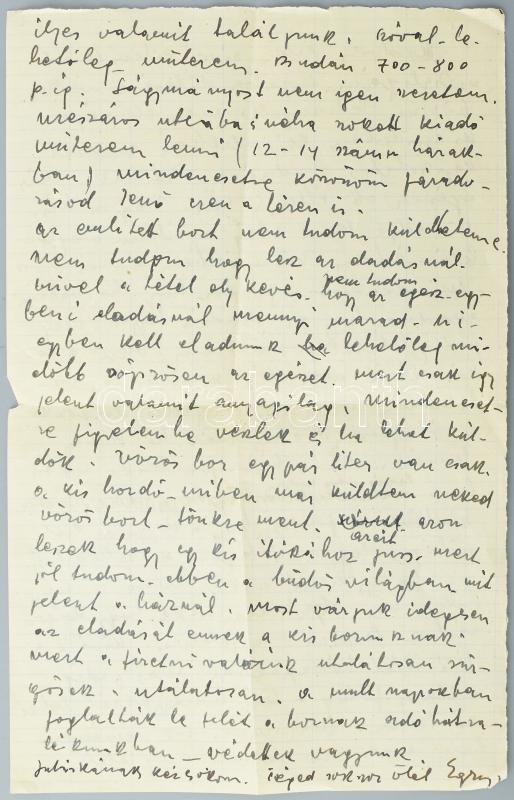 ilyes valamit találjunk, szóval le-
hetőleg műterem. Budán 700-800
p.ig. Ságymányost nem igen szeretem.
mészáros utcába néha szokott kiadó
műterem lenni (12-14 számu házak-
ban) mindenesetre köszönöm fárado-
zásod Jenő ezen a téren is.
az emlitett bort nem tudom küldhetem e.
nem tudom hogy lesz az eladásnál.
mivel a tétel oly kevés. nem tudom
hogy az egész egy-
beni eladásnál mennyi marad. mi-
egyben kell eladnunk ha lehetőleg mi-
előbb az egészet. mert csak igy
jelent valamit anyagilag, mindeneset-
re figyelembe veszlek és ha lehet kül-
dök. vörös bor egy pár liter van csak.
a kis hordó miben már küldtem neked
vörös bort tönkre ment. azon
leszek hogy egy kis itókához juss. mert
jól tudom. ebben a büdös világban mit
jelent a háznál. most várjuk idegesen
az eladását ennek a kis borunknak.
mert a fizetni valóink utálatosan sür-
gősek. utálatosan. a mult napokban
foglalták le felét a bornak adóhátra-
lékunkban védettek vagyunk
Juliskának kézcsókom. Téged sokszor ölel Egry.
darabanth